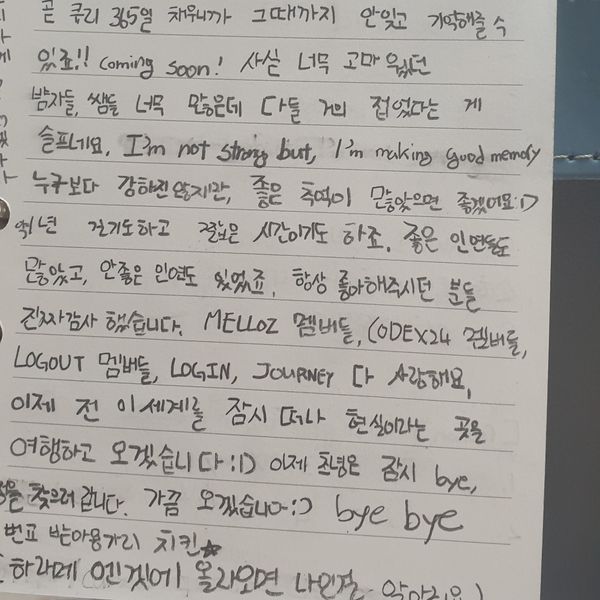 곧 쿠리 365일 채우니까 그때까지 안잊고 기억해줄 수
있죠!! coming soon! 사실 너무 고마웠던
밤자들, 쌤들 너무 많은데 다들 거의 접었다는 게
슬프네요, I'm not strong but, I'm making good memory
누구보다 강하진않지만, 좋은 추억이 많았으면 좋겠어요:)
1년 길기도하고 짧은 시간이기도 하죠. 좋은 인연들도
많았고, 안좋은 인연도 있었죠, 항상 좋아해주시던 분들
진짜감사 했습니다. MELLOZ 멤버들, CODEX24 멤버들,
LOGOUT 멤버들, LOGIN, JOURNEY 다 사랑해요,
이제 전 이세계를 잠시 떠나 현실이라는 곳을
여행하고 오겠습니다:) 이제 잠시 bye,
찾으러 갑니다. 가끔 오겠습니다:) bye bye
번고 받아용가리 치킨☆
하라메 엔겟에 올라오면 나인걸